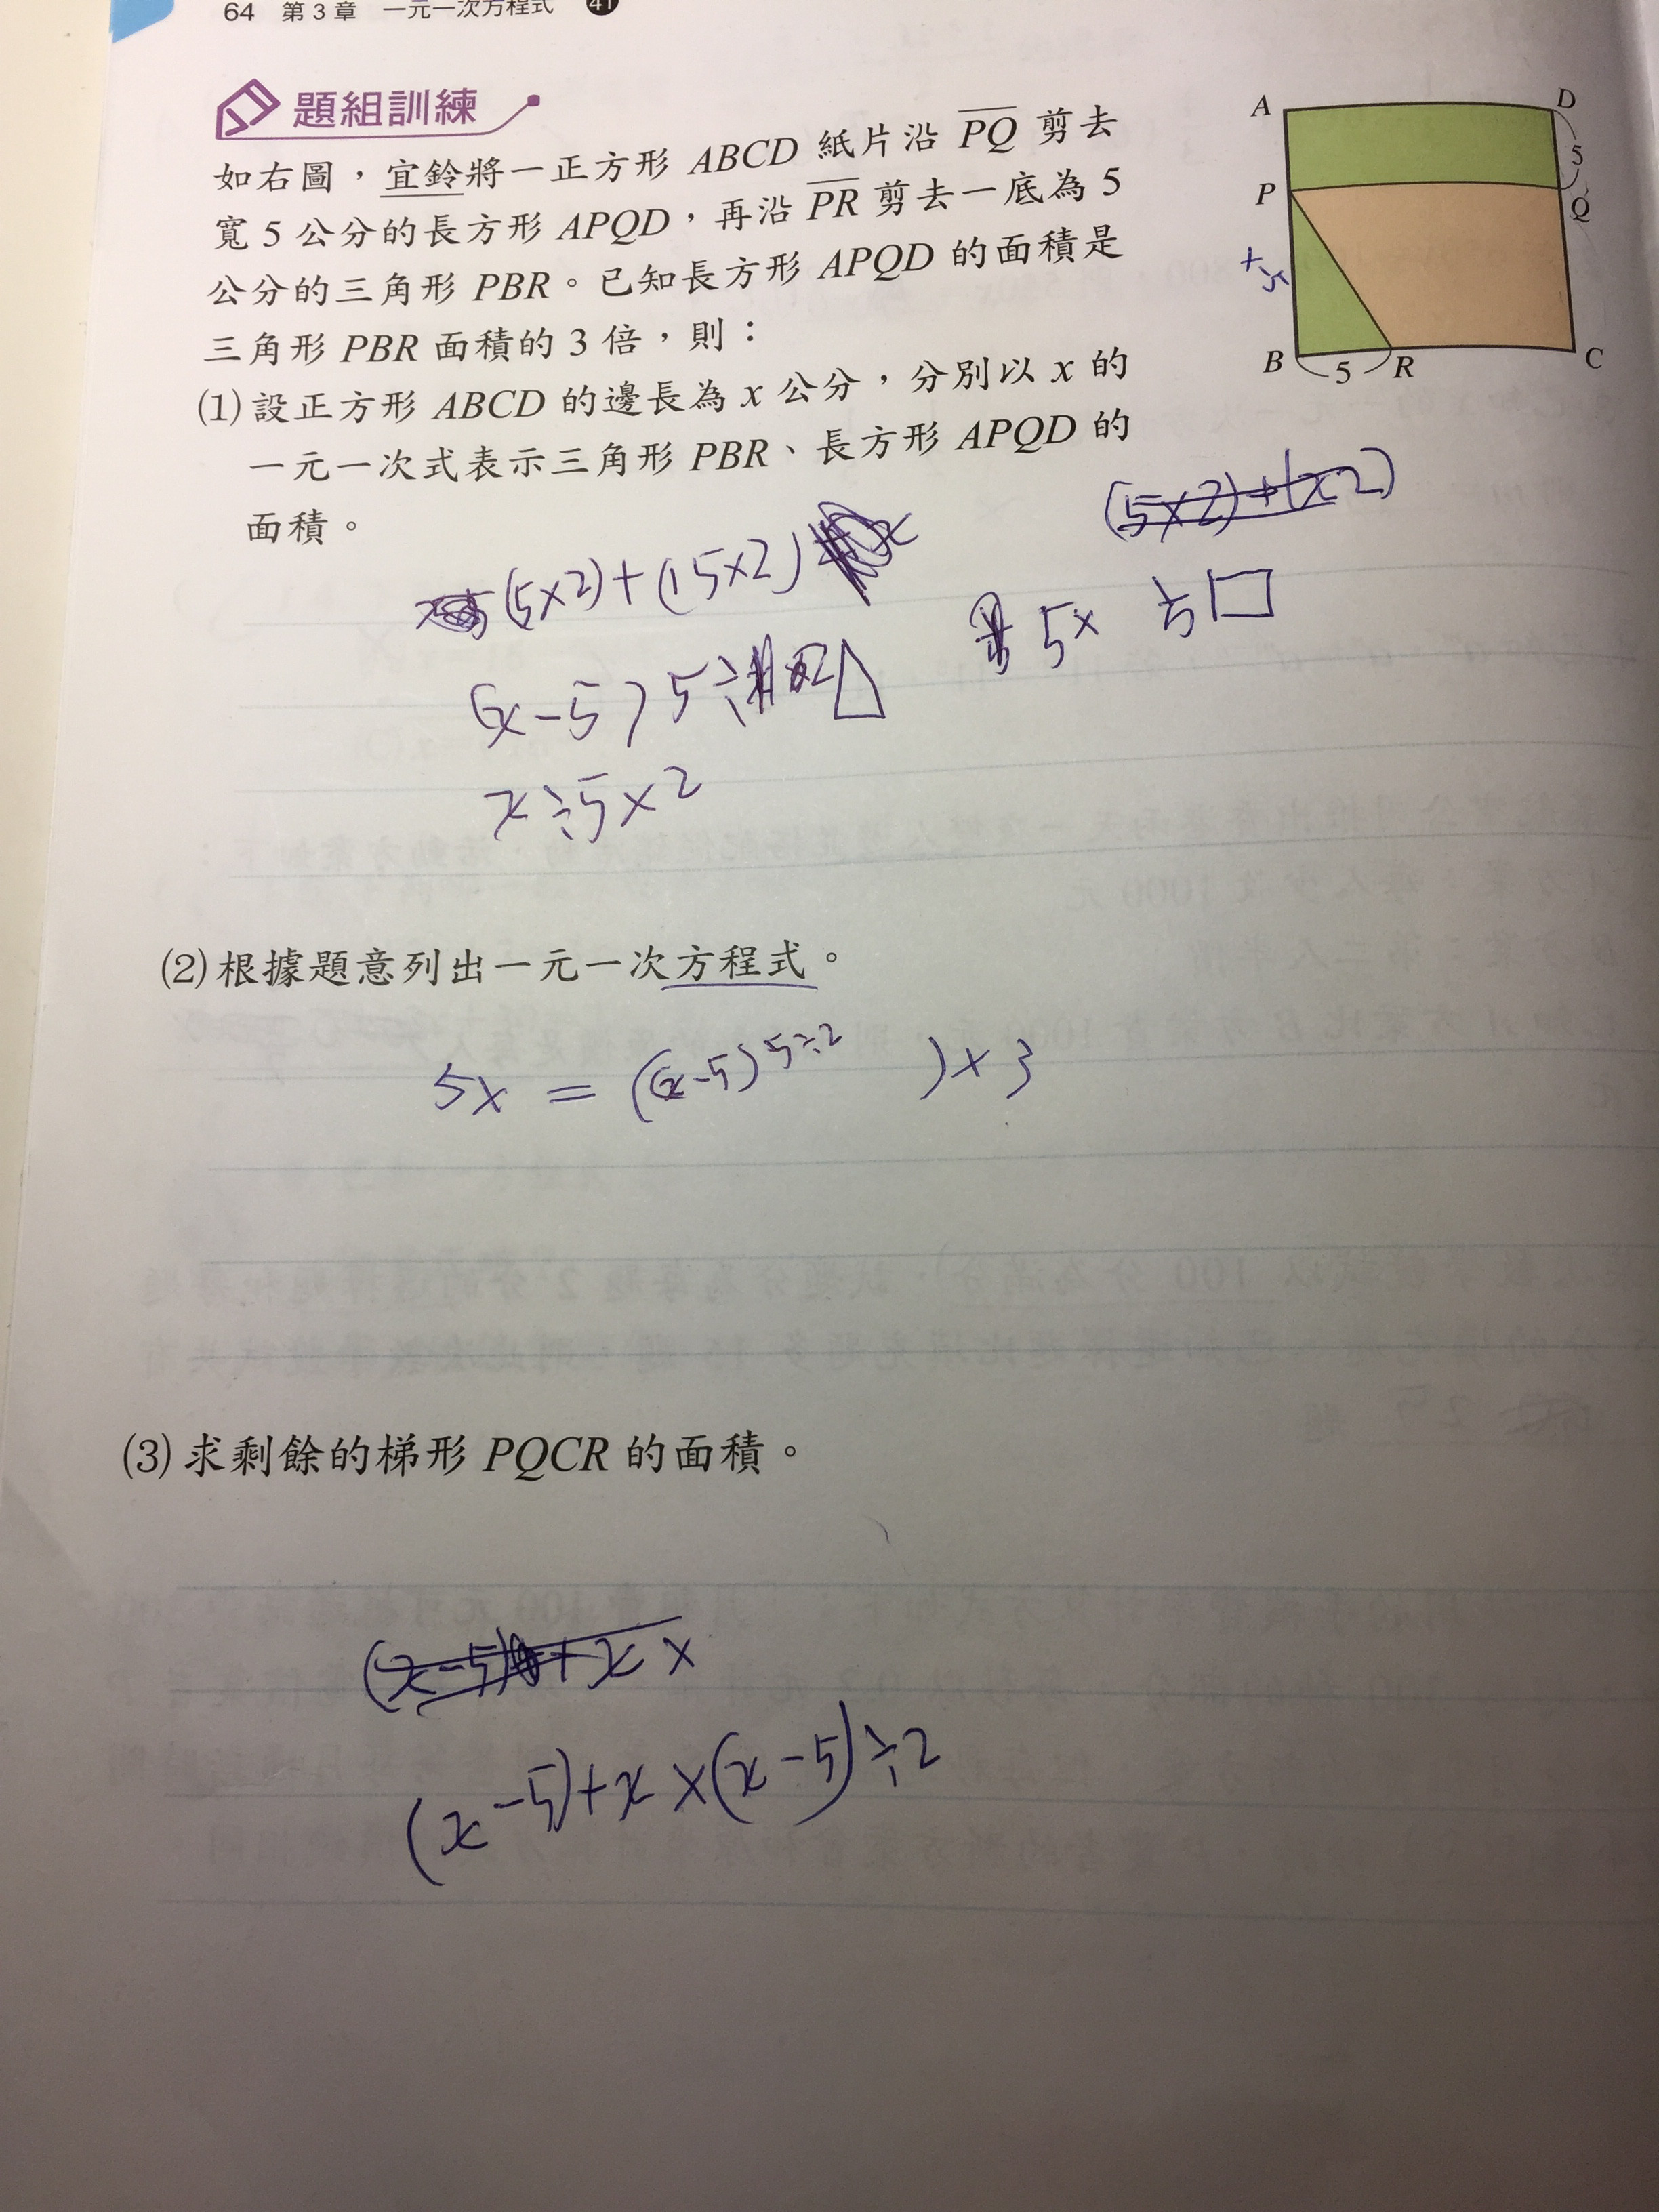 64 第3章 一元一次方程式 41
題組訓練
如右圖，宜鈴將一正方形 ABCD 紙片沿 PQ 剪去
寬 5 公分的長方形 APQD，再沿 PR 剪去一底為 5
公分的三角形 PBR。已知長方形 APQD 的面積是
三角形 PBR 面積的 3 倍，則：
A
D
5
P
Q
B
5
R
C
(1) 設正方形 ABCD 的邊長為 x 公分，分別以 x 的
一元一次式表示三角形 PBR、長方形 APQD 的
面積。
(5×2)+(x2)
(5×2)+(15×2)
5x
(x-5)5÷
x÷5×2
(2) 根據題意列出一元一次方程式。
5x = ((x-5)5÷2 )×3
(3) 求剩餘的梯形 PQCR 的面積。
(x-5)+x×
(x-5)+x×(x-5)÷2